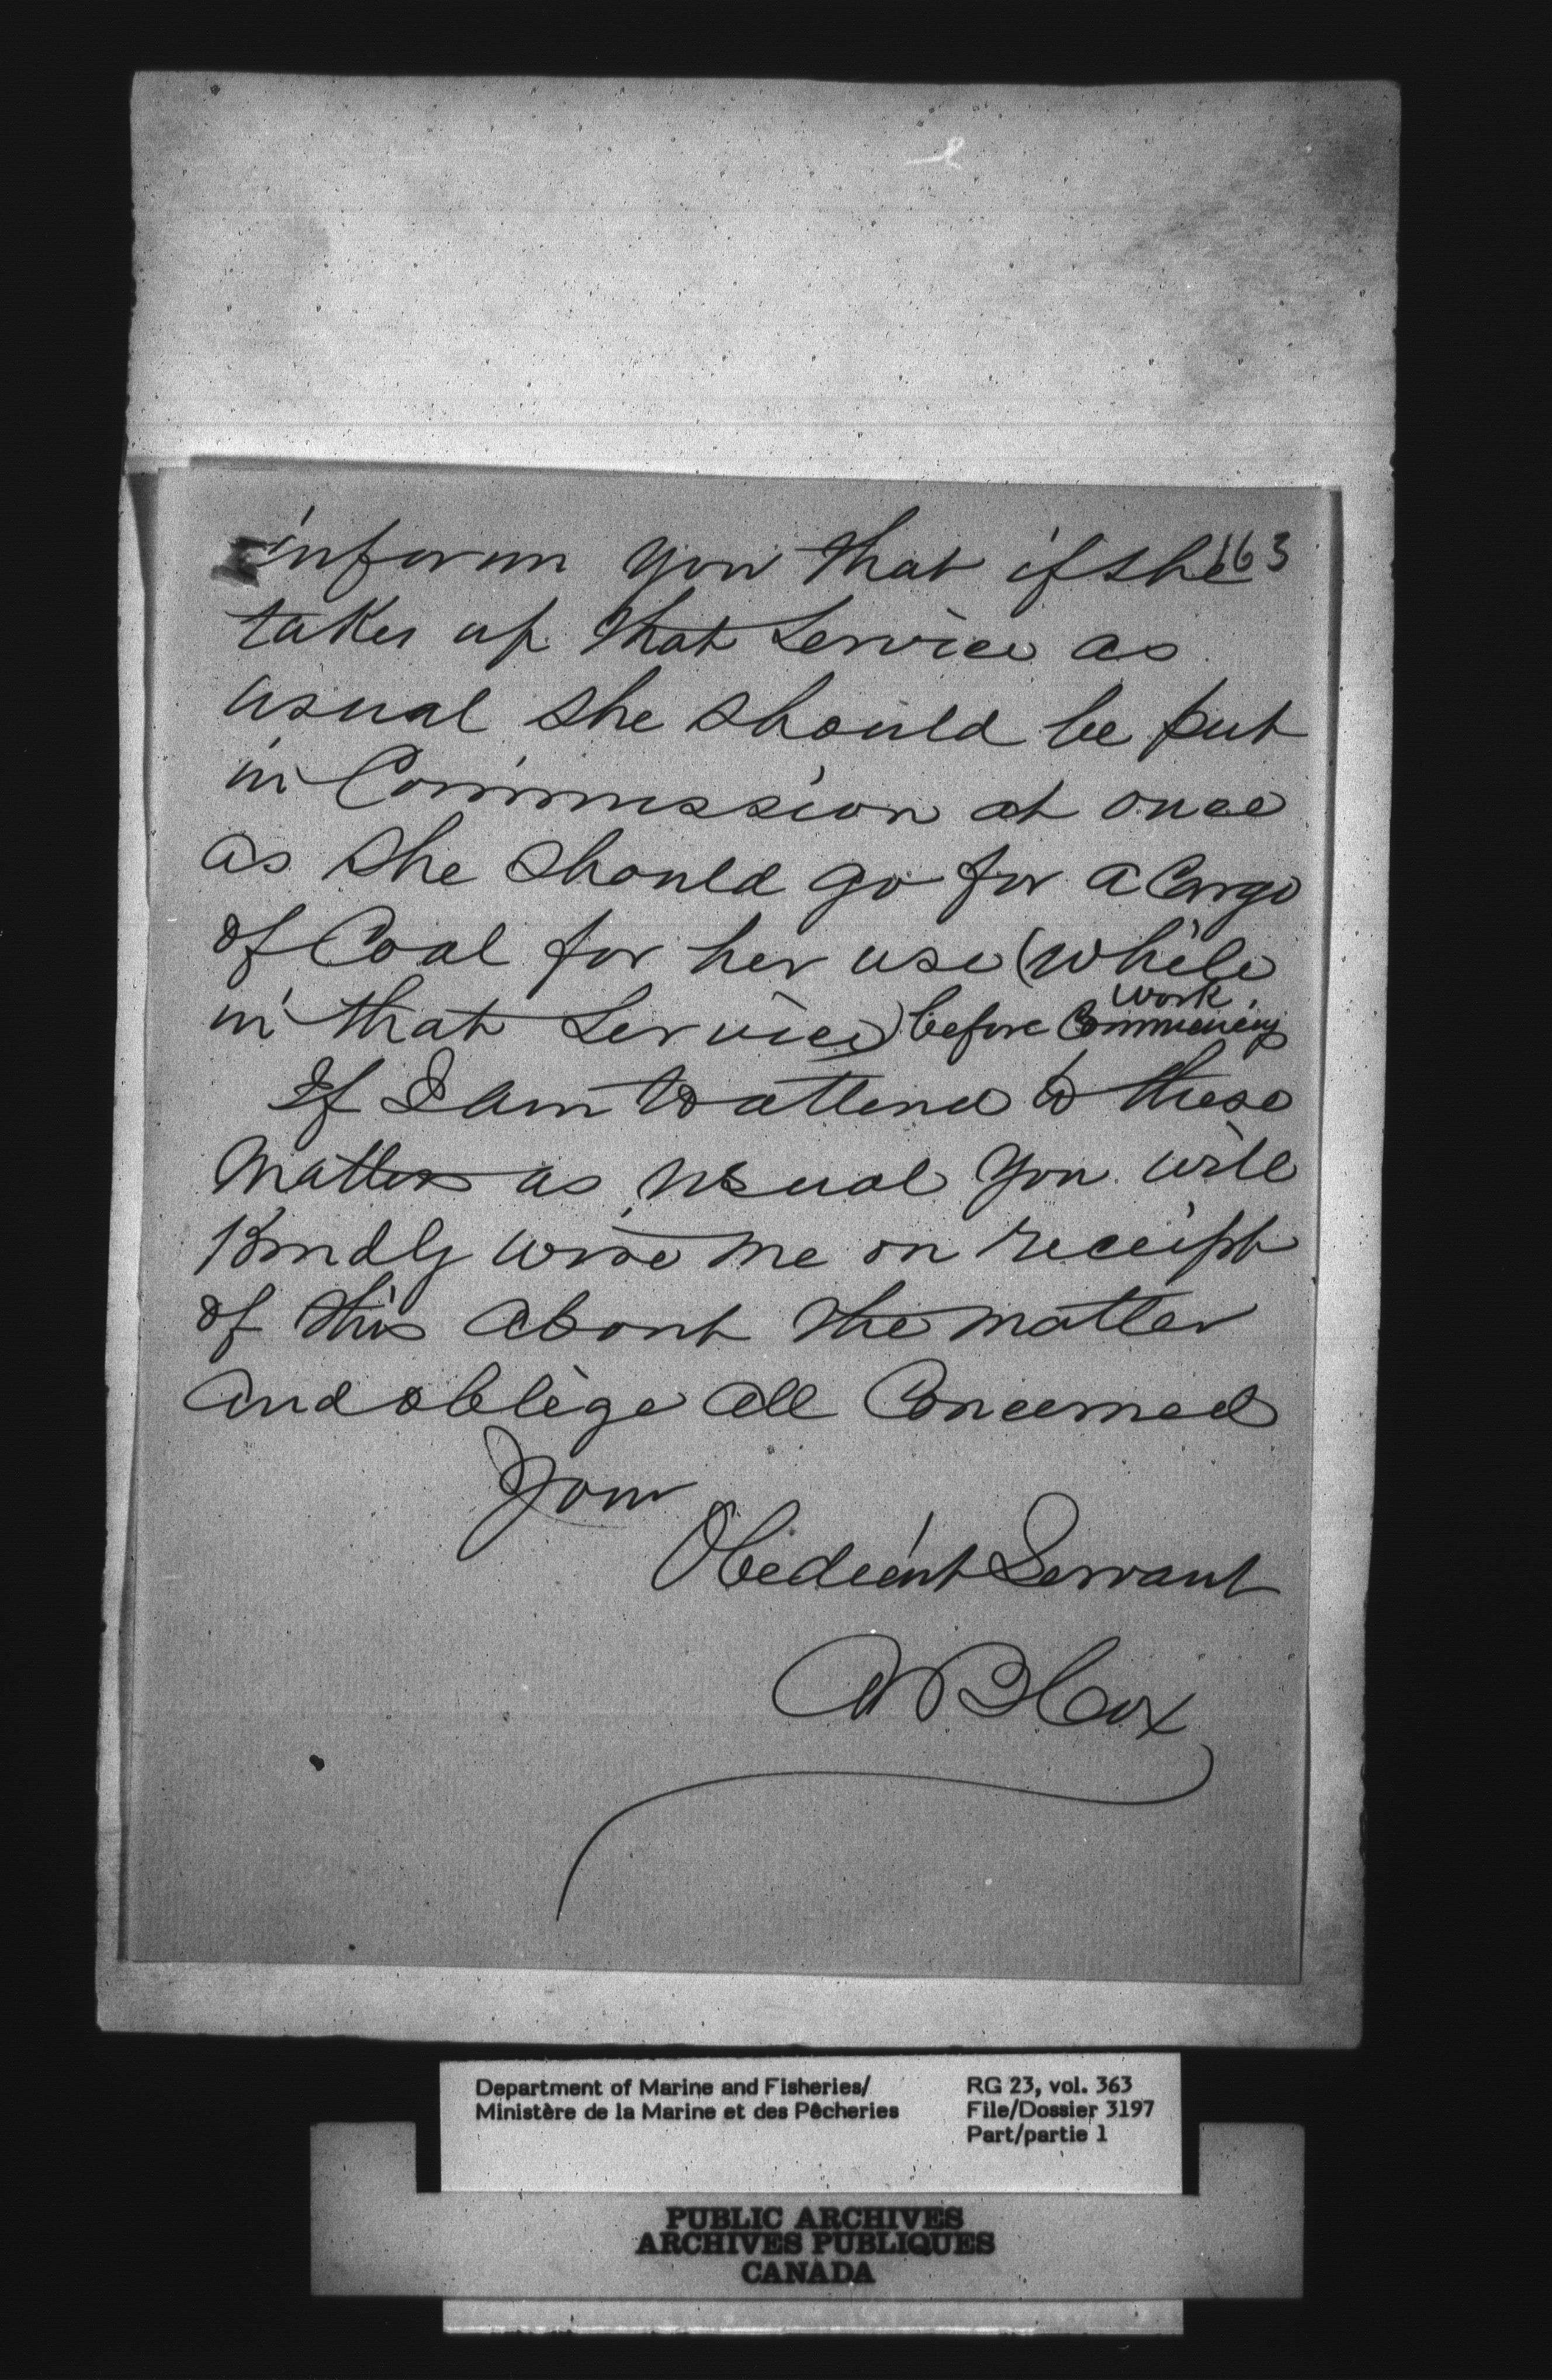 163
inform you that if she
takes up that Service as
usual she should be put
in Commission at once
as she should go for a Cargo
of Coal for her use (while
in that Service) before Commencing work.
If I am to attend to these
Matters as usual you will
Kindly wire me on receipt
of this about the matter
and oblige all Concerned
Your
Obedient Servant
Cox
Department of Marine and Fisheries/
Ministère de la Marine et des Pêcheries
RG 23, vol. 363
File/Dossier 3197
Part/partie 1
PUBLIC ARCHIVES
ARCHIVES PUBLIQUES
CANADA